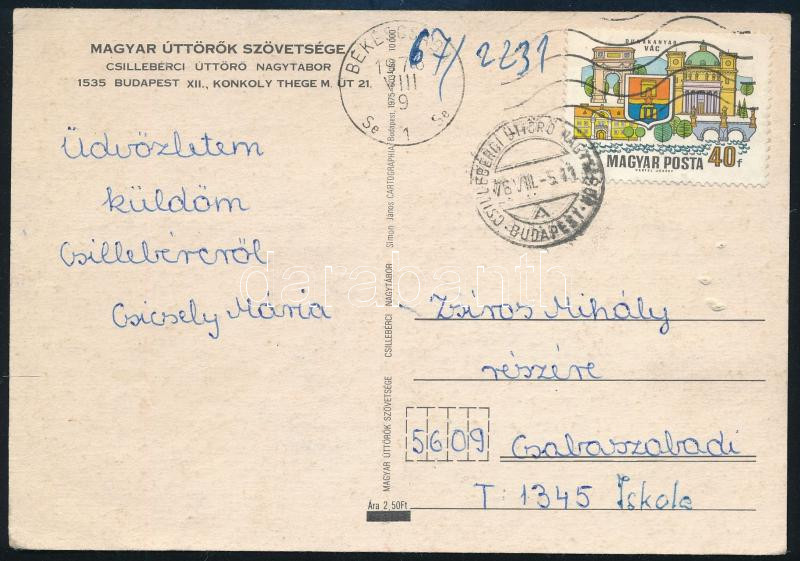 MAGYAR ÚTTÖRŐK SZÖVETSÉGE
CSILLEBÉRCI ÚTTÖRŐ NAGYTÁBOR
1535 BUDAPEST XII., KONKOLY THEGE M. ÚT 21.
Üdvözletem
küldöm
Csillebércről
Csicsely Mária
MAGYAR ÚTTÖRŐK SZÖVETSÉGE CSILLEBÉRCI NAGYTÁBOR Simon János CARTOGRAPHIA Budapest, 1975
10 000
Ára 2,50Ft
67/2231
VIII
9
Se 1 Se
DUNAKANYAR
VÁC
MAGYAR POSTA 40f
CSILLEBÉRCI ÚTTÖRŐ
BUDAPEST
A
darabanth
Zsíros Mihály
részére
5609 Csabaszabadi
T: 1345 Iskola